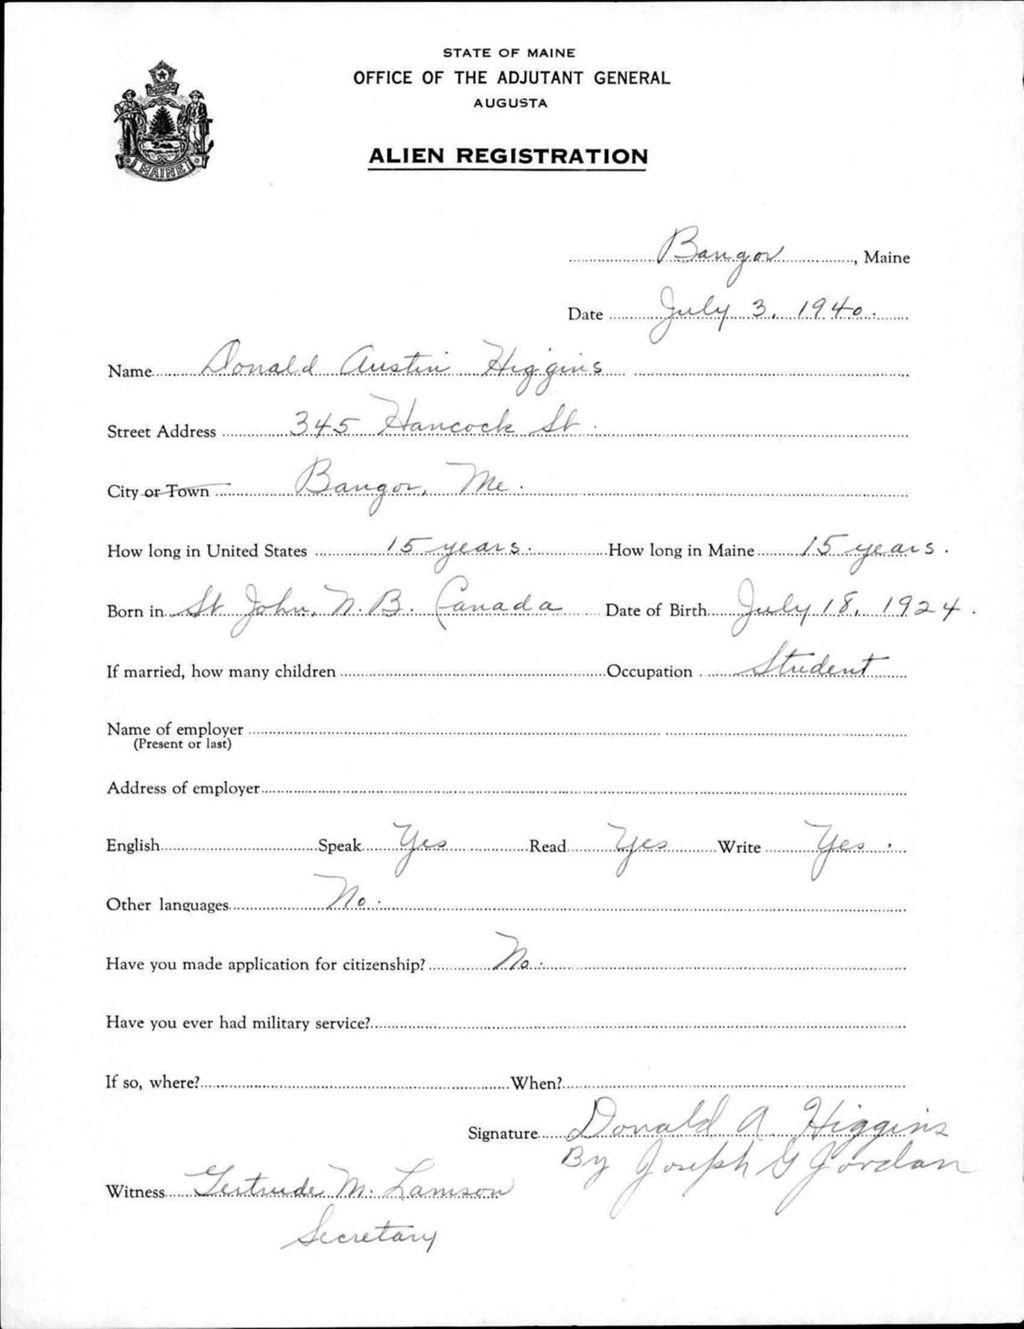 STATE OF MAINE
OFFICE OF THE ADJUTANT GENERAL
AUGUSTA
ALIEN REGISTRATION
MAINE
Bangor, Maine
Date July 3, 1940.
Name Donald Austin Higgins
Street Address 345 Hancock St.
City or Town Bangor, Me.
How long in United States 15 years. How long in Maine 15 years.
Born in St John, N.B. Canada Date of Birth July 18, 1924.
If married, how many children Occupation Student
Name of employer
(Present or last)
Address of employer
English Speak Yes Read Yes Write Yes.
Other languages No.
Have you made application for citizenship? No.
Have you ever had military service?
If so, where? When?
Signature Donald A Higgins
By Joseph G Jordan
Witness Gertrude M. Lamson
Secretary